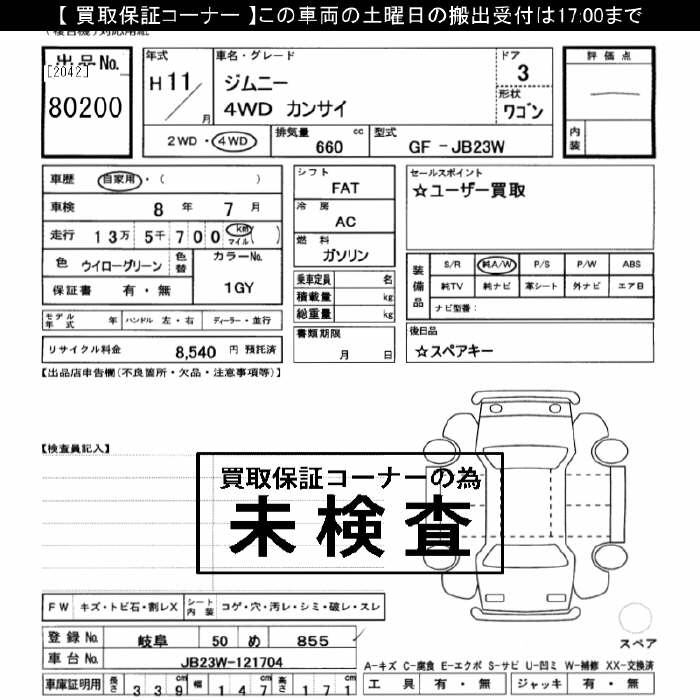 【 買取保証コーナー 】この車両の土曜日の搬出受付は17:00まで
出品No.
[2042]
80200
年式
H 11 / 月
車名・グレード
ジムニー
4WD カンサイ
ドア
3
形状
ワゴン
評価点
内装
2WD ・ 4WD
排気量 660 cc
型式 GF - JB23W
車歴 自家用・( )
車検 8 年 7 月
走行 13万 5千 700 km マイル( )
色 ウイローグリーン 色替
カラーNo.
1GY
保証書 有・無
モデル年式 年 ハンドル 左・右 ディーラー・並行
リサイクル料金 8,540 円 預託済
シフト
FAT
冷房
AC
燃料
ガソリン
乗車定員 名
積載量 kg
総重量 kg
書類期限
月 日
セールスポイント
☆ユーザー買取
装備品
S/R 純A/W P/S P/W ABS
純TV 純ナビ 革シート 外ナビ エアB
ナビ型番:
後日品
☆スペアキー
【出品店申告欄(不良箇所・欠品・注意事項等)】
【検査員記入】
買取保証コーナーの為
未検査
FW キズ・トビ石・割レX シート内装 コゲ・穴・汚レ・シミ・破レ・スレ
登録No. 岐阜 50 め 855
車台No. JB23W-121704
車庫証明用 長さ 339 cm 幅 147 cm 高さ 171 cm
スペア
A-キズ C-腐食 E-エクボ S-サビ U-凹ミ W-補修 XX-交換済
工具 有・無 ジャッキ 有・無